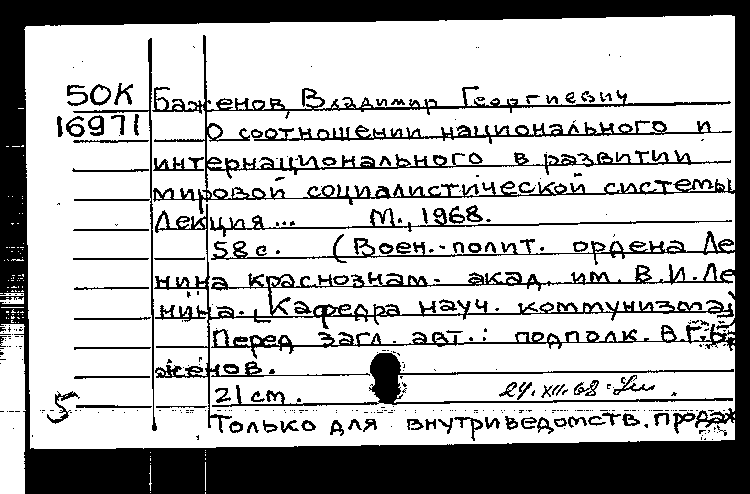 50К Баженов, Владимир Георгиевич
16971 О соотношении национального и
интернационального в развитии
мировой социалистической системы
Лекция... М., 1968.
58 с. (Воен.-полит. ордена Ле
нина краснознам. акад. им. В.И.Ле
нина. [Кафедра науч. коммунизма]
Перед загл. авт.: подполк. В.Г.Ба
женов.
21 cm. 24.XII.68
5
Только для внутриведомств. продаж